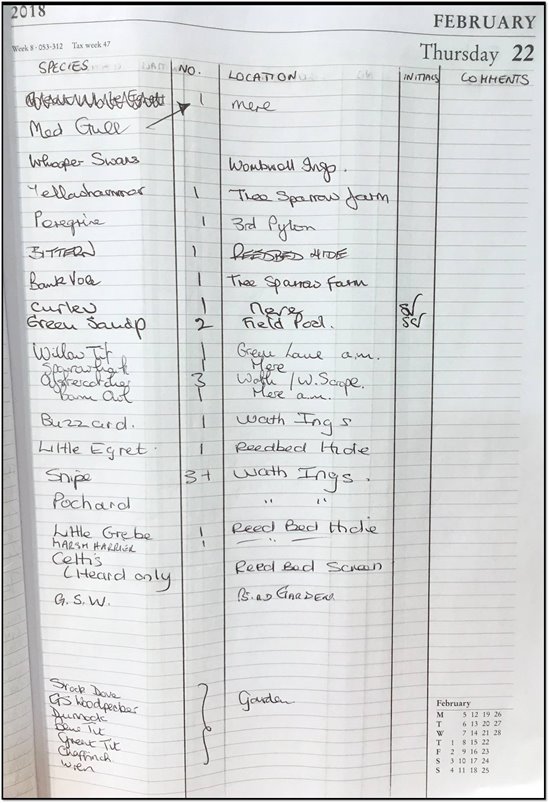 2018 FEBRUARY
Week 8 · 053-312 Tax week 47 Thursday 22
SPECIES NO. LOCATION INITIALS COMMENTS
1 mere
Med Gull
Whooper Swans Wombwell Ings.
Yellowhammer 1 Tree Sparrow farm
Peregrine 1 3rd Pylon
BITTERN 1 REEDBED HIDE
Bank Vole 1 Tree Sparrow Farm
Curlew 1 Mere
Green Sandp 2 Field Pool.
Willow Tit 1 Green Lane a.m.
Sparrowhawk 1 Mere
Oystercatcher 3 Wath / W. Scrape.
Barn Owl 1 Mere a.m.
Buzzard. 1 Wath Ings
Little Egret. 1 Reedbed Hide
Snipe 3+ Wath Ings.
Pochard " "
Little Grebe 1 Reed Bed Hide
MARSH HARRIER 1 " "
Cettis
(Heard only Reed Bed Screen
G.S.W. BIRD GARDEN
Stock Dove
GS Woodpecker Garden
Dunnock
Blue Tit
Great Tit
Chaffinch
Wren
February
M 5 12 19 26
T 6 13 20 27
W 7 14 21 28
T 1 8 15 22
F 2 9 16 23
S 3 10 17 24
S 4 11 18 25